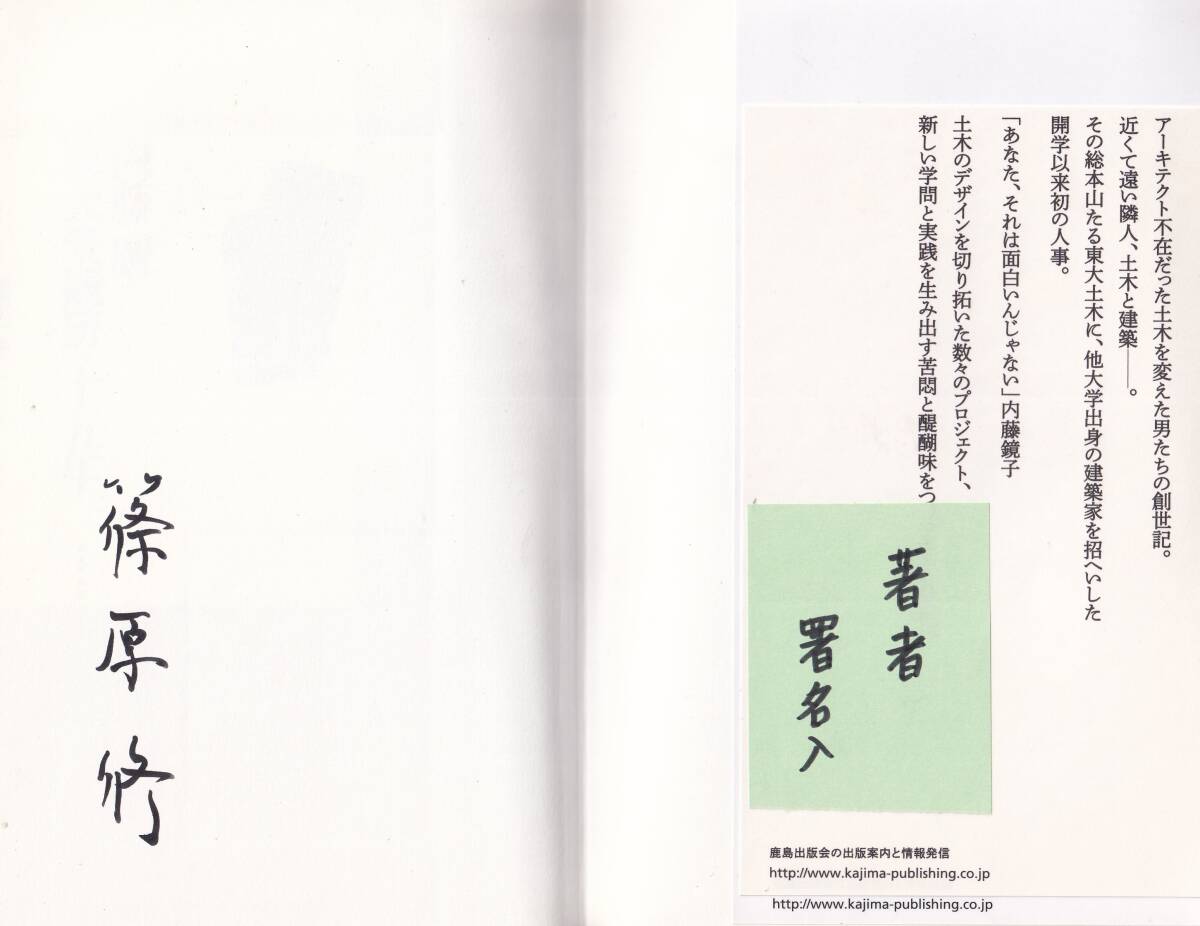 篠原修
アーキテクト不在だった土木を変えた男たちの創世記。
近くて遠い隣人、土木と建築――。
その総本山たる東大土木に、他大学出身の建築家を招へいした
開学以来初の人事。
「あなた、それは面白いんじゃない」内藤鏡子
土木のデザインを切り拓いた数々のプロジェクト、
新しい学問と実践を生み出す苦悶と醍醐味をつ
著者
署名入
鹿島出版会の出版案内と情報発信
http://www.kajima-publishing.co.jp
http://www.kajima-publishing.co.jp